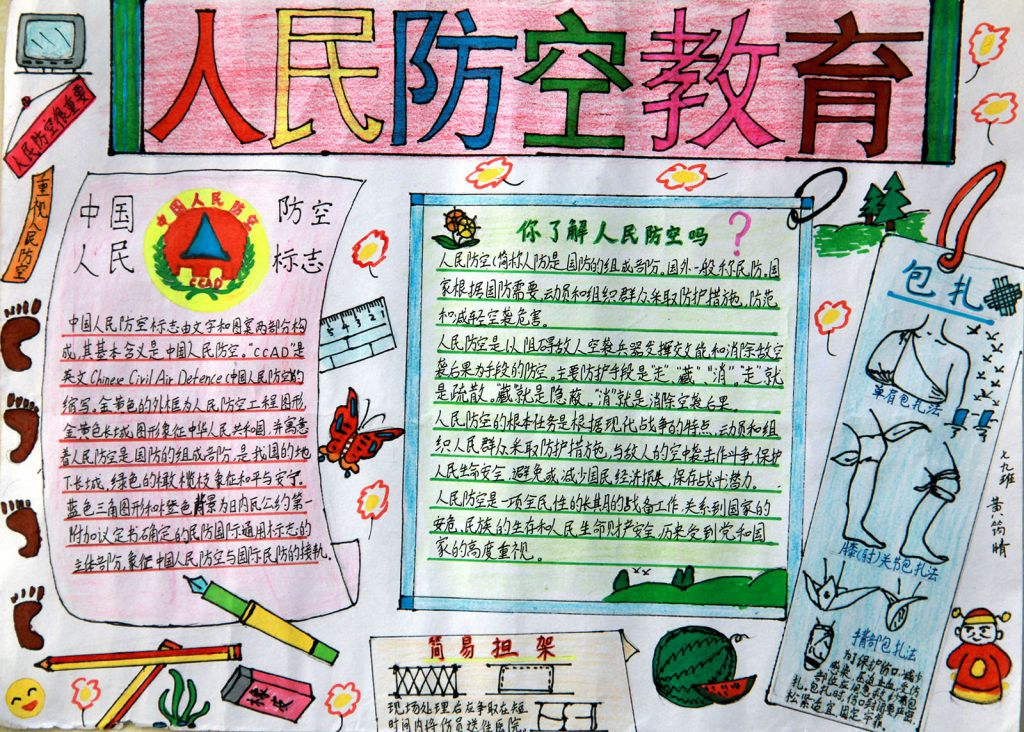 人民防空教育
人民防空很重要
重视人民防空
中国
人民
防空
标志
中国人民防空
CCAD
中国人民防空标志由文字和图案两部分构
成,其基本含义是中国人民防空。"CCAD"是
英文Chinese Civil Air Defence(中国人民防空)的
缩写。金黄色的外框为人民防空工程图形,
金黄色长城图形象征中华人民共和国,并寓意
着人民防空是国防的组成部分,是我国的地
下长城,绿色的橄榄枝象征和平与安宁。
蓝色三角图形和橙色背景为日内瓦公约第一
附加议定书确定的民防国际通用标志的
主体部分,象征中国人民防空与国际民防的接轨。
你了解人民防空吗?
人民防空(简称人防)是国防的组成部分,国外一般称民防。国
家根据国防需要,动员和组织群众采取防护措施,防范
和减轻空袭危害。
人民防空是以阻碍敌人空袭兵器发挥效能,和消除敌空
袭后果为手段的防空。主要防护手段是"走","藏","消"。"走"就
是疏散。"藏"就是隐蔽。"消"就是消除空袭后果。
人民防空的根本任务是根据现代战争的特点,动员和组
织人民群众采取防护措施,与敌人的空中袭击作斗争,保护
人民生命安全,避免或减少国民经济损失,保存战斗势力。
人民防空是一项全民性的长期的战备工作,关系到国家的
安危,民族的生存和人民生命财产安全,历来受到党和国
家的高度重视。
简易担架
现场处理后在争取在短
时间内将伤员送往医院。
橡皮
5 4 3 2 1
包扎
单肩包扎法
膝(肘)关节包扎法
手背部包扎法
七九班 黄筠晴